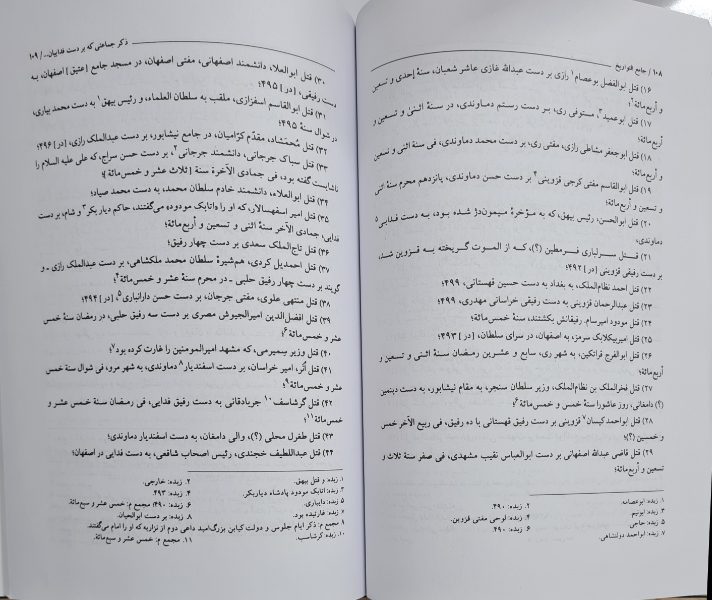 ۱۰۸ / جامع التواریخ
۱۶) قتل ابوالفضل بوعصام۱ رازی بر دست عبدالله غازی عاشر شعبان، سنهٔ إحدی و تسعین
و أربع‌مائة۲؛
۱۷) قتل ابوعمید۳، مستوفی ری، بر دست رستم دماوندی، در سنهٔ اثنی و تسعین و
أربع‌مائة؛
۱۸) قتل ابوجعفر مشاطی رازی، مفتی ری، بر دست محمد دماوندی، فی سنهٔ اثنی و تسعین
و أربع‌مائة؛
۱۹) قتل ابوالقاسم مفتی کرجی قزوینی۴ بر دست حسن دماوندی، پانزدهم محرم سنهٔ اثنی
و تسعین و أربع‌مائة؛
۲۰) قتل ابوالحسن، رئیس بیهق، که به مؤخرهٔ میمون‌دژ شده بود، به دست فدایی۵
دماوندی،
۲۱) قتل سرلباری قرمطین (؟)، که از الموت گریخته به قزوین شد،
بر دست رفیقی قزوینی [در] ۴۹۲؛
۲۲) قتل احمد نظام‌الملک، به بغداد به دست حسین قهستانی، ۴۹۹؛
۲۳) قتل عبدالرحمان قزوینی به دست رفیقی خراسانی مهدری، ۴۹۹؛
۲۴) قتل مودود امیرسام. رفیقانش بکشتند، سنهٔ خمس‌مائة؛
۲۵) قتل امیربیکلابک سرمز، به اصفهان، در سرای سلطان، [در] ۴۹۳؛
۲۶) قتل ابوالفرج قراتکین، به شهر ری، سابع و عشرین رمضان سنهٔ اثنی و تسعین و
أربع‌مائة؛
۲۷) قتل فخرالملک بن نظام‌الملک، وزیر سلطان سنجر، به مقام نیشابور، به دست دبنمین
(؟) دامغانی، روز عاشورا سنهٔ خمس و خمس‌مائة۶؛
۲۸) قتل ابواحمد کیسان۷ قزوینی بر دست رفیق قهستانی با ده رفیق، فی ربیع الآخر خمس
و خمسین (؟)؛
۲۹) قتل قاضی عبدالله اصفهانی بر دست ابوالعباس نقیب مشهدی، فی صفر سنهٔ ثلاث و
تسعین و أربع‌مائة؛
۱. زبده: ابوعصامه.
۲. زبده: ۴۹۰.
۳. زبده: ابونیم.
۴. زبده: لوحی مفتی قزوین.
۵. زبده: حاجی.
۶. زبده: ۴۹۰.
۷. زبده: ابواحمد دولتشاهی.
ذکر جماعتی که بر دست فداییان... / ۱۰۹
۳۰) قتل ابوالعلا، دانشمند اصفهانی، مفتی اصفهان، در مسجد جامع [عتیق] اصفهان، به
دست رفیقی، [در] ۴۹۵؛
۳۱) قتل ابوالقاسم اسفزازی، ملقب به سلطان العلماء، و رئیس بیهق۱ به دست محمد بیاری،
در شوال سنهٔ ۴۹۵؛
۳۲) قتل مُحمَشاد، مقدّم کرّامیان، در جامع نیشابور، بر دست عبدالملک رازی، [در] ۴۹۶؛
۳۳) قتل سباک جرجانی، دانشمند جرجانی۲، بر دست حسن سراج، که علی علیه السلام را
ناشایست گفته بود، فی جمادی الآخرة سنهٔ [ثلاث عشر و خمس‌مائة]؛
۳۴) قتل ابوالعلاء، دانشمند خادم سلطان محمد، به دست محمد صیاد؛
۳۵) قتل امیر اسفهسالار، که او را «اتابک مودود» می‌گفتند، حاکم دیاربکر۳ و شام، بر دست
فدایی، جمادی الآخر سنهٔ اثنی و تسعین و أربع‌مائة؛
۳۶) قتل تاج‌الملک سعدی بر دست چهار رفیق؛
۳۷) قتل احمدیل کردی، هم‌شیرهٔ سلطان محمد ملکشاهی، بر دست عبدالملک رازی ـ و
گویند بر دست چهار رفیق حلبی ـ در محرم سنهٔ عشر و خمس‌مائة۴؛
۳۸) قتل منتهی علوی، مفتی جرجان، بر دست حسن دارانباری۵، [در] ۴۹۴؛
۳۹) قتل افضل‌الدین امیرالجیوش مصری بر دست سه رفیق حلبی، در رمضان سنهٔ خمس
عشر و خمس‌مائة۶؛
۴۰) قتل وزیر سمیرمی، که مشهد امیرالمومنین را غارت کرده بود۷؛
۴۱) قتل اُتُر، امیر خراسان، بر دست اسفندیار۸ دماوندی، به شهر مرو، فی شوال سنهٔ خمس
عشر و خمس‌مائة۹؛
۴۲) قتل گرشاسف۱۰ جربادقانی به دست رفیق فدایی، فی رمضان سنهٔ خمس عشر و
خمس‌مائة۱۱؛
۴۳) قتل طغرل محلی (؟)، والی دامغان، به دست اسفندیار دماوندی؛
۴۴) قتل عبداللطیف خجندی، رئیس اصحاب شافعی، به دست فدایی در اصفهان؛
۱. زبده: و قتل بیهق.
۲. زبده: خارجی.
۳. زبده: اتابک مودود پادشاه دیاربکر.
۴. زبده: ۴۹۳.
۵. زبده: دایباری.
۶. زبده: ۴۹۰؛ مجمع م: خمس عشر و سبع‌مائة.
۷. زبده: غارتیده بود.
۸. زبده: بر دست ابوالحیان.
۹. مجمع م: ذکر ایام جلوس و دولت کیابن بزرگ‌امید داعی دوم از نزاریه که او را امام می‌گفتند.
۱۰. زبده: کرشاسب.
۱۱. مجمع م: خمس عشر و سبع‌مائة.